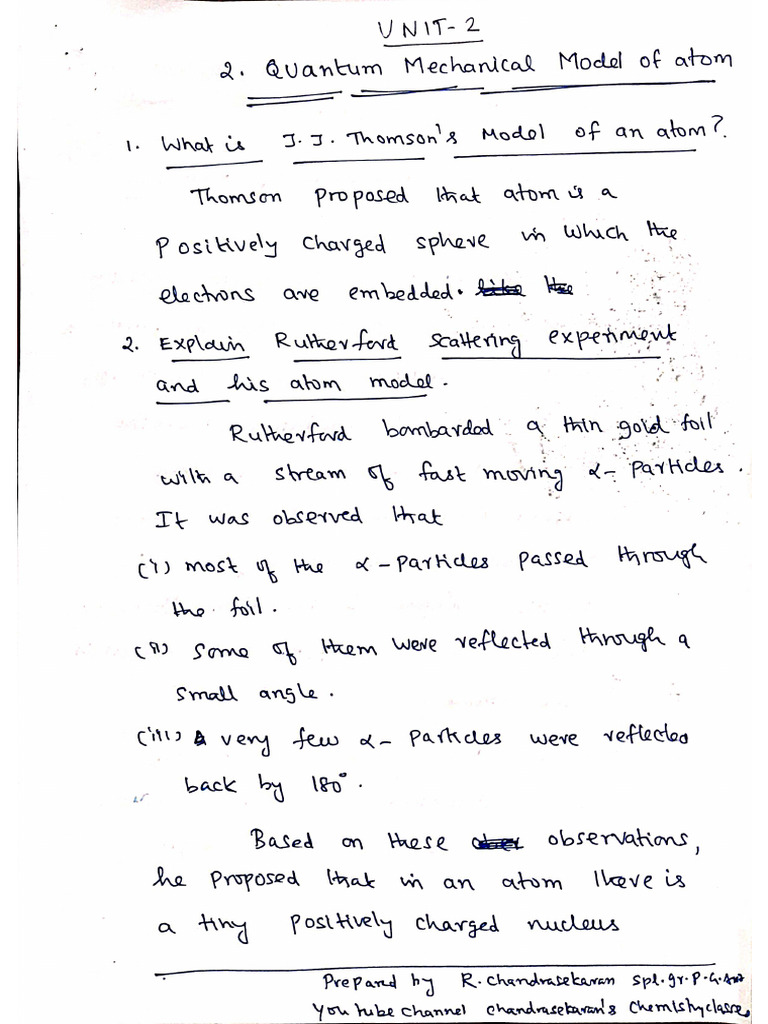 UNIT-2
2. Quantum Mechanical Model of atom
1. What is J.J. Thomson's Model of an atom?
Thomson proposed that atom is a
positively charged sphere in which the
electrons are embedded.
2. Explain Rutherford scattering experiment
and his atom model.
Rutherford bombarded a thin gold foil
with a stream of fast moving α-particles.
It was observed that
(i) most of the α-particles passed through
the foil.
(ii) some of them were reflected through a
small angle.
(iii) very few α-particles were reflected
back by 180°.
Based on these observations,
he proposed that in an atom there is
a tiny positively charged nucleus
Prepared by R. Chandrasekaran Spl.gr.P.G.
You tube channel chandrasekaran's chemistry